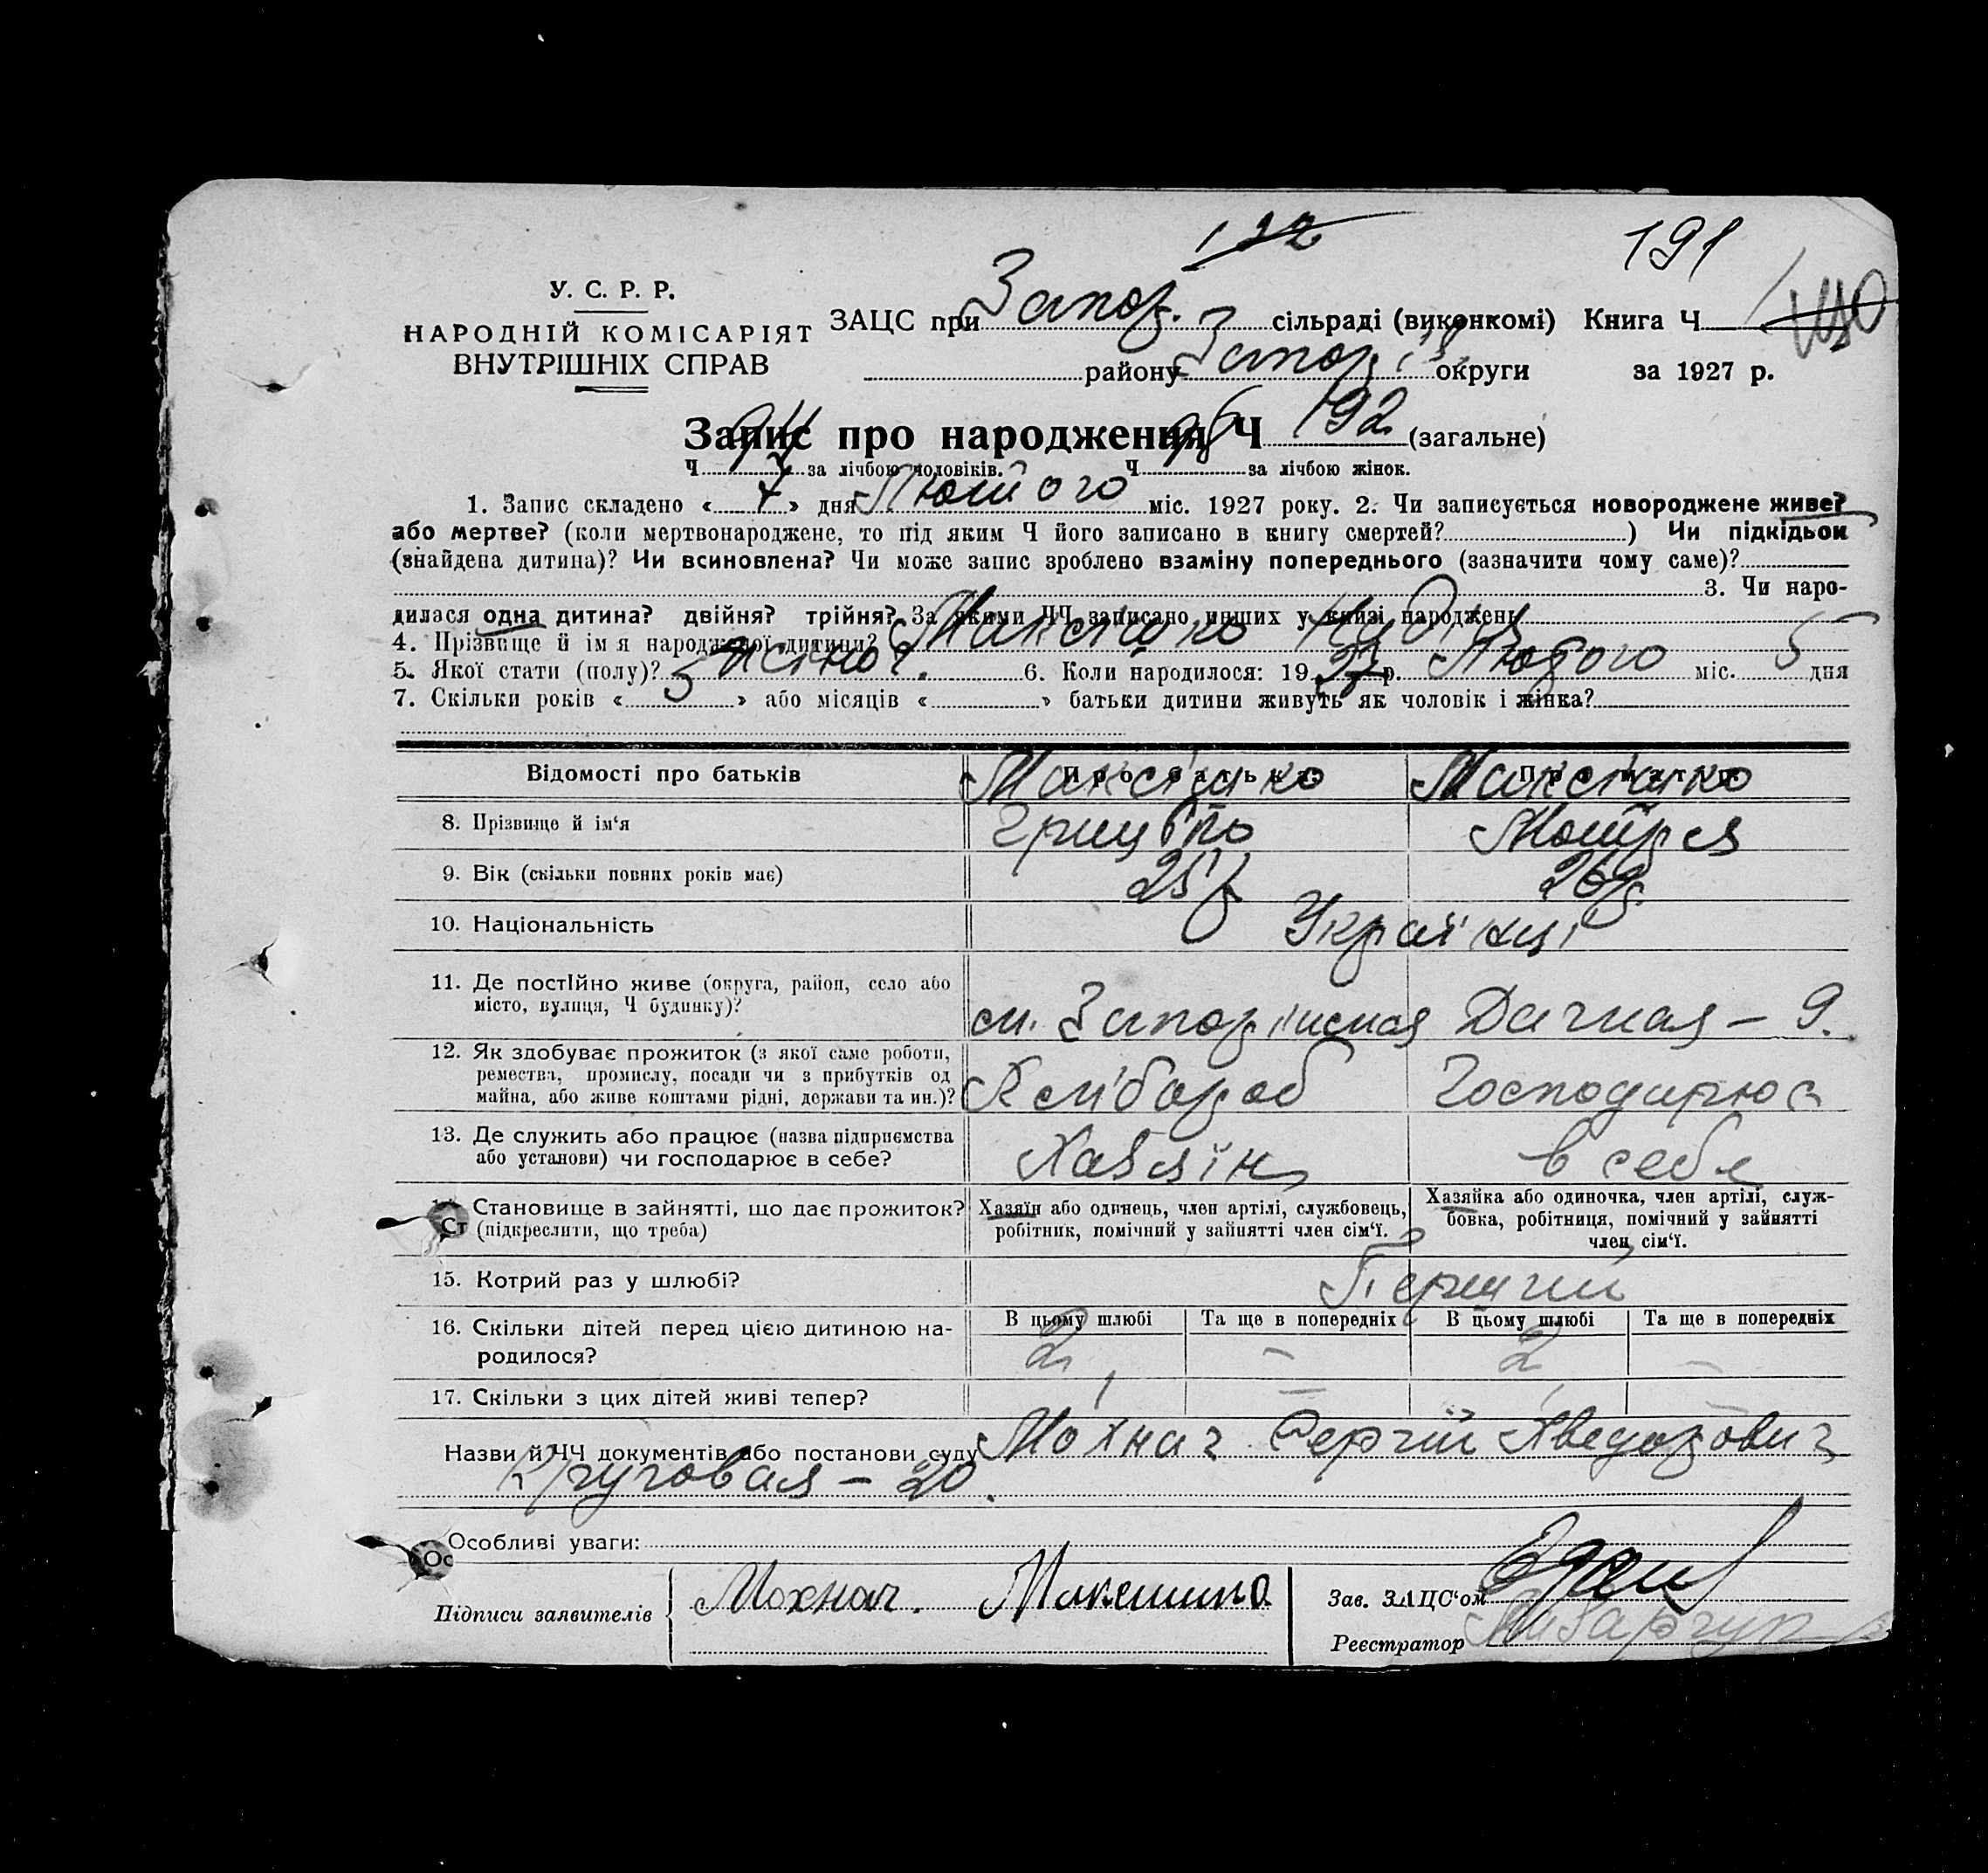 122
191
У. С. Р. Р.
НАРОДНІЙ КОМІСАРІЯТ
ВНУТРІШНІХ СПРАВ
ЗАЦС при Запор. сільраді (виконкомі) Книга Ч
району Запоріз округи за 1927 р.
Запис про народження Ч 192 (загальне)
Ч 94 за лічбою чоловіків. Ч 96 за лічбою жінок.
1. Запис складено « 7 » дня Лютого міс. 1927 року. 2. Чи записується новороджене живе?
або мертве? (коли мертвонароджене, то під яким Ч його записано в книгу смертей? ) Чи підкідьок
(знайдена дитина)? Чи всиновлена? Чи може запис зроблено взаміну попереднього (зазначити чому саме)?
3. Чи наро-
дилася одна дитина? двійня? трійня? За якими ЧЧ записано инших у книзі народжень
4. Прізвище й ім я народженої дитини?
5. Якої стати (полу)? жіночі. 6. Коли народилося: 19 р. Лютого міс. 5 дня
7. Скільки років « 5 » або місяців « » батьки дитини живуть як чоловік і жінка?
Відомості про батьків Про батька Про матір
8. Прізвище й ім‘я Грицько Мотря
9. Вік (скільки повних років має) 25 р 26 р.
10. Національність Українці
11. Де постійно живе (округа, район, село або
місто, вулиця, Ч будинку)? Дачная – 9.
12. Як здобуває прожиток (з якої саме роботи,
ремества, промислу, посади чи з прибутків од
майна, або живе коштами рідні, держави та ин.)? Хлібороб Господарює
13. Де служить або працює (назва підприємства
або установи) чи господарює в себе? Хазяїн в себе
Ст Становище в зайнятті, що дає прожиток?
(підкреслити, що треба)
Хазяїн або одинець, член артілі, службовець,
робітник, помічний у зайнятті член сім‘ї.
Хазяйка або одиночка, член артілі, служ-
бовка, робітниця, помічний у зайнятті
член сім‘ї.
15. Котрий раз у шлюбі? Перший
16. Скільки дітей перед цією дитиною на-
родилося?
В цьому шлюбі Та ще в попередніх В цьому шлюбі Та ще в попередніх
2 – 2 –
17. Скільки з цих дітей живі тепер? 1 – 1 –
Назви й ЧЧ документів або постанови суду Мохнач Сергій Хведорович
Круговая – 20.
Ос Особливі уваги:
Підписи заявителів Мохнач. Зав. ЗАЦС‘ом
Реєстратор